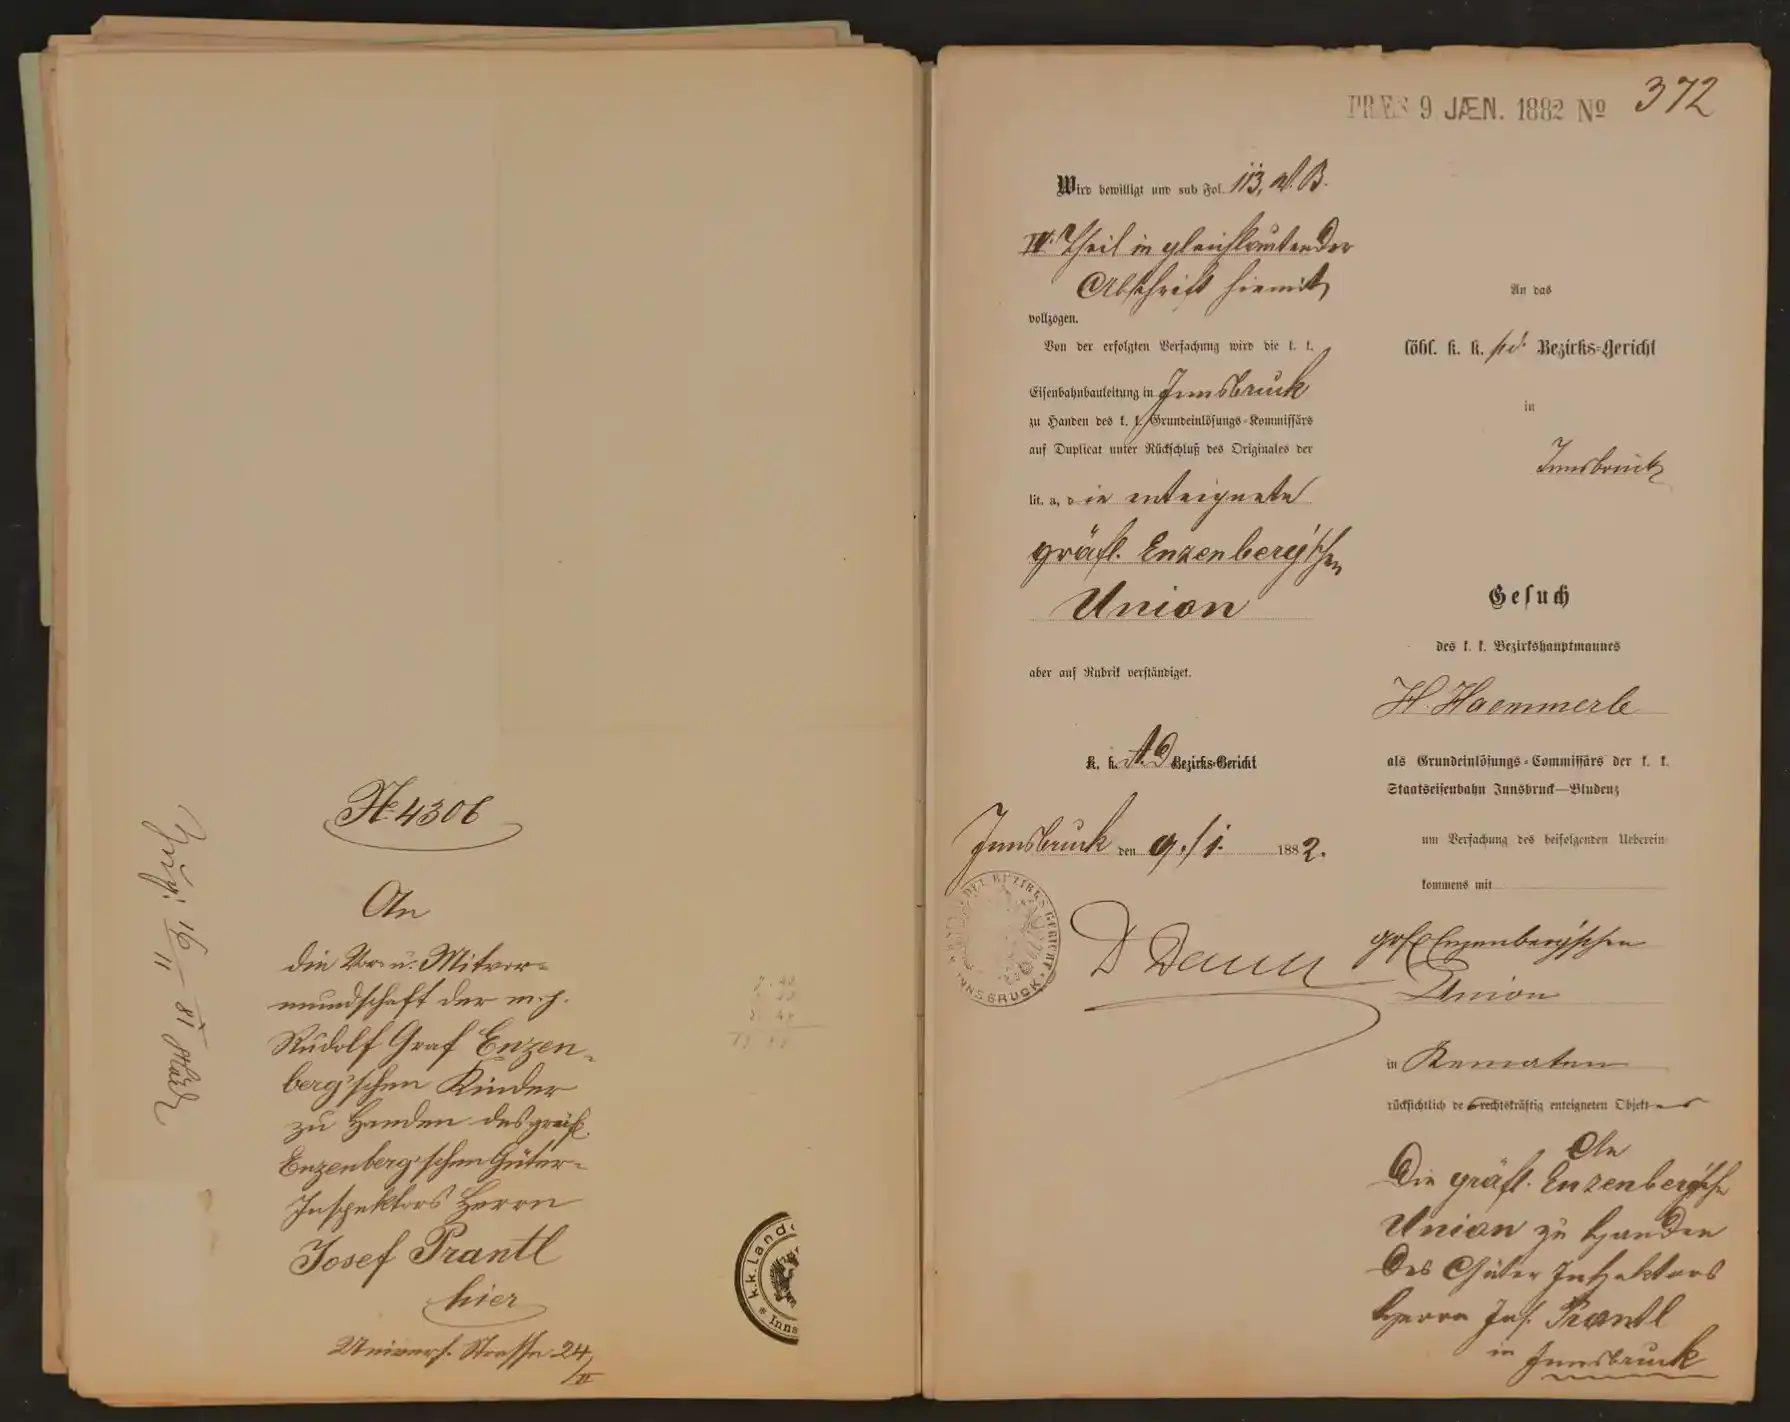 No 4306
An
die Vor- u. Mitvor-
mundschaft der m. j.
Rudolf Graf Enzen-
berg'schen Kinder
zu Handen des gräfl.
Enzenberg'schen Güter-
Inspektors Herrn
Josef Prantl
hier
Univers. Strasse 24/II
16/11 81
k.k. Landes
Inns
PRÆS 9 JÆN. 1882 No 372
Wird bewilligt und sub Fol. 113, B.
IV. Theil in gleichlautender
Abschrift hiemit
vollzogen.
Von der erfolgten Verfachung wird die k. k.
Eisenbahnbauleitung in Innsbruck
zu Handen des k. k. Grundeinlösungs-Kommissärs
auf Duplicat unter Rückschluß des Originales der
lit. a, die enteignete
gräfl. Enzenberg'schen
Union
aber auf Rubrik verständiget.
K. k. st. d. Bezirks-Gericht
Innsbruck den 9./1. 1882.
DEL. BEZIRKS GERICHT
INNSBRUCK
An das
löbl. k. k. Bezirks-Gericht
in
Innsbruck
Gesuch
des k. k. Bezirkshauptmannes
H. Haemmerle
als Grundeinlösungs-Commissärs der k. k.
Staatseisenbahn Innsbruck—Bludenz
um Verfachung des beifolgenden Ueberein-
kommens mit
gräfl Enzenberg'schen
Union
in Kematen
rücksichtlich des rechtskräftig enteigneten Objektes
An
Die gräfl. Enzenberg'sche
Union zu Handen
des Güter Inspektors
Herrn Jos. Prantl
in Innsbruck